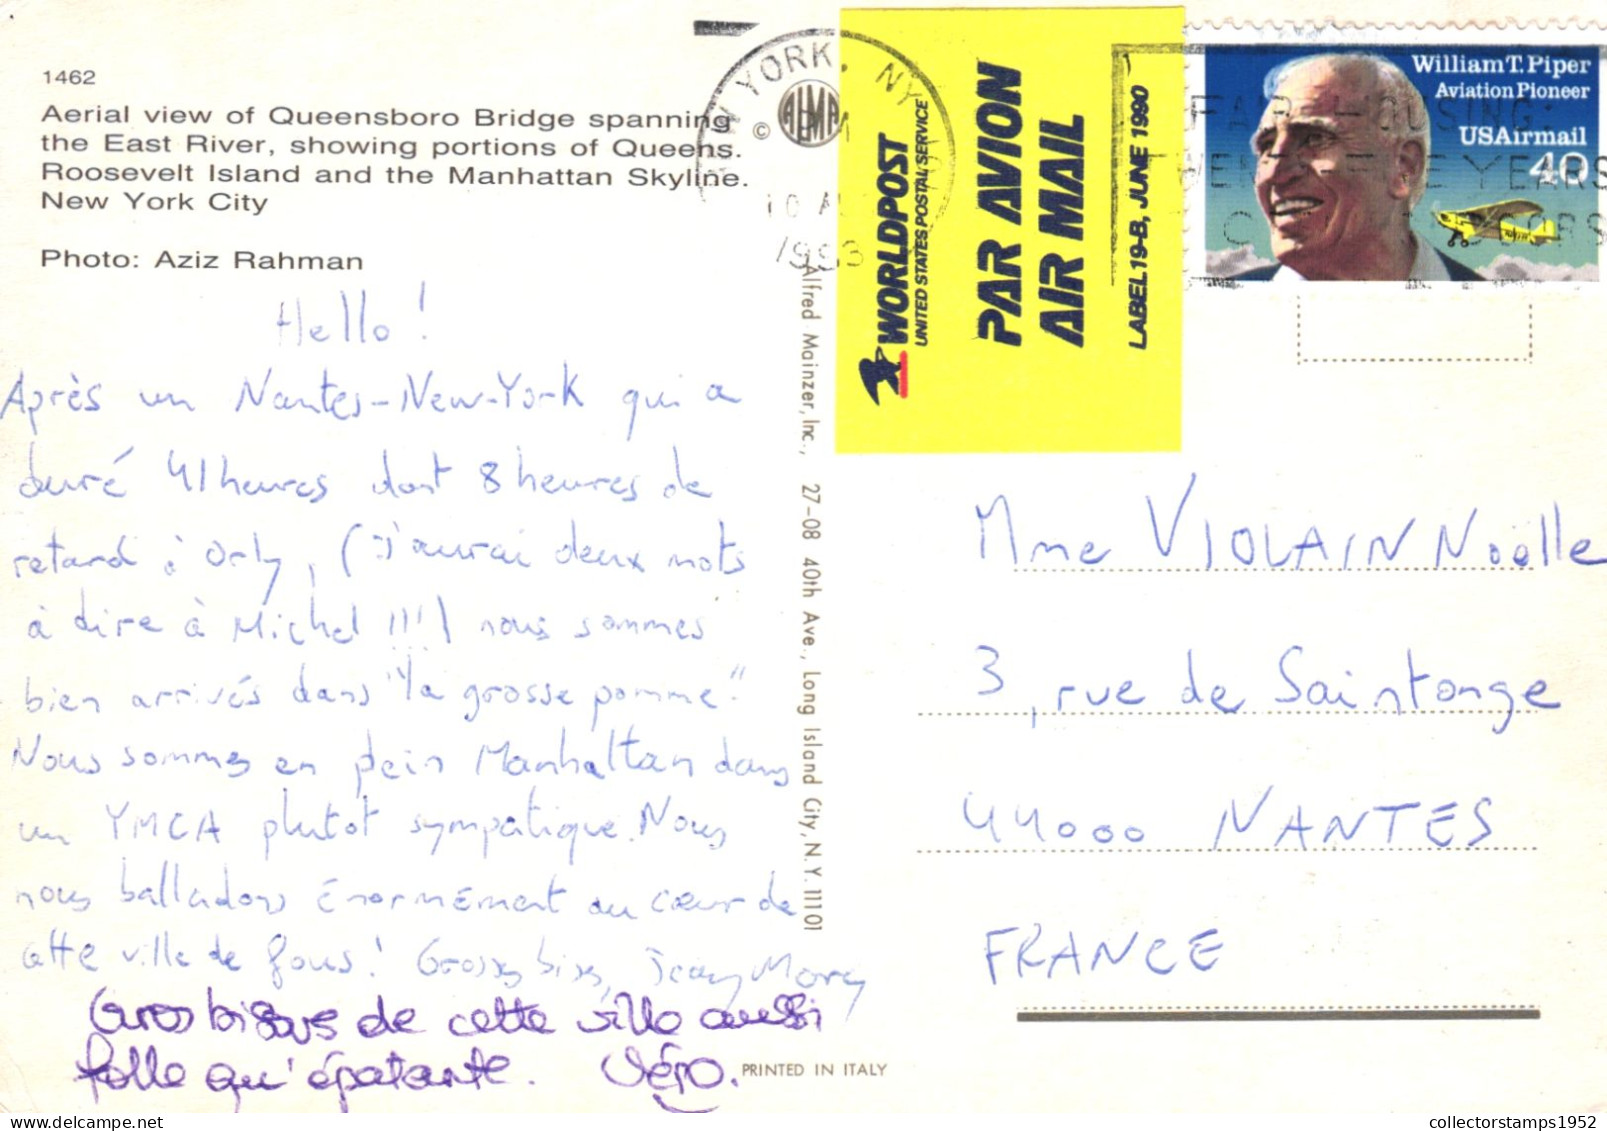 1462
Aerial view of Queensboro Bridge spanning
the East River, showing portions of Queens.
Roosevelt Island and the Manhattan Skyline.
New York City
Photo: Aziz Rahman
Hello !
Après un Nantes-New-York qui a
duré 41 heures dont 8 heures de
retard à Orly, (j'aurai deux mots
à dire à Michel !!!) nous sommes
bien arrivés dans "la grosse pomme".
Nous sommes en plein Manhattan dans
un YMCA plutot sympatique. Nous
nous balladons énormément au cœur de
cette ville de fous! Grosses bises,
Gros bisous de cette ville aussi
folle qu'épatante. Véro.
Alfred Mainzer, Inc., 27-08 40th Ave., Long Island City, N.Y. 11101
©
PRINTED IN ITALY
YORK, NY
WORLDPOST
UNITED STATES POSTAL SERVICE
PAR AVION
AIR MAIL
LABEL 19-B, JUNE 1990
William T. Piper
Aviation Pioneer
USAirmail
40
FAIR HOUSING:
YEARS
Mme VIOLAIN Noëlle
3, rue de Saintonge
44000 NANTES
FRANCE
collectorstamps1952